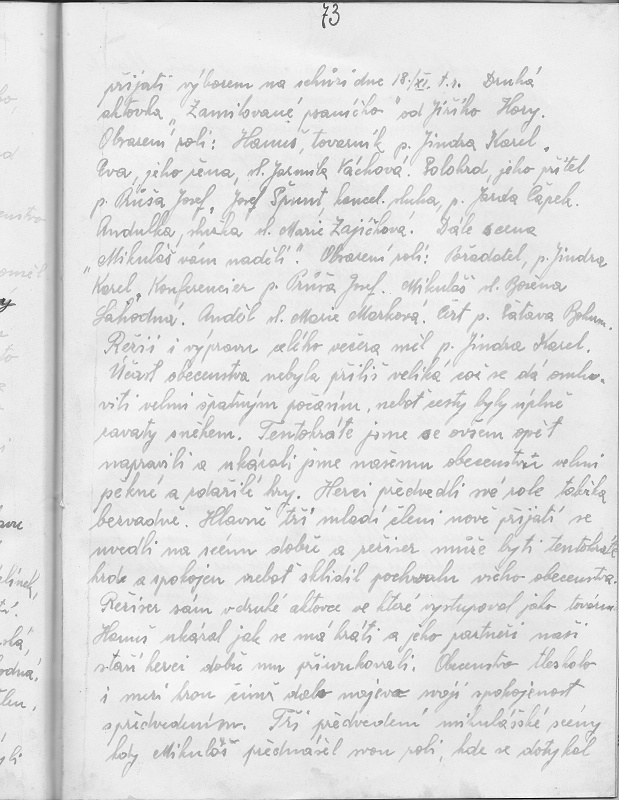 73
přijati výborem na schůzi dne 18./XI. t.r. Druhá
aktovka „Zamilované psaníčko" od Jiřího Hory.
Obsazení rolí: Hanuš, továrník p. Jindra Karel.
Eva, jeho žena, sl. Jarmila Váchová. Zolohrd, jeho přítel
p. Průša Josef, Josef Špunt, kancel. sluha, p. Janda Čápek.
Andulka, služka sl. Marie Zajíčková. Dále scena
„Mikuláš vám nadělí". Obsazení rolí: Pořadatel, p. Jindra
Karel, Konferencier p. Průša Josef. Mikuláš sl. Božena
Lahodná. Anděl sl. Marie Marková. Čert p. Šátava Bohum.
Režii i výpravu celého večera měl p. Jindra Karel.
Účast obecenstva nebyla příliš veliká což se dá omlu-
viti velmi špatným počasím, neboť cesty byly úplně
zavaty sněhem. Tentokráte jsme se ovšem opět
napravili a ukázali jsme našemu obecenstvu velmi
pěkné a zdařilé hry. Herci předvedli své role takřka
bezvadně. Hlavně tři mladí členi nově přijatí se
uvedli na scénu dobře a režiser může býti tentokráte
hrd a spokojen neboť sklidil pochvalu všeho obecenstva.
Režiser sám v druhé aktovce ve které vystupoval jako továrn.
Hanuš ukázal jak se má hráti a jeho partneři naši
staří herci dobře mu přizvukovali. Obecenstvo tleskalo
i mezi hrou čímž dalo najevo svojí spokojenost
s předvedením. Při předvedení mikulášské scény
kdy Mikuláš přednášel svou roli, kde se dotýkal